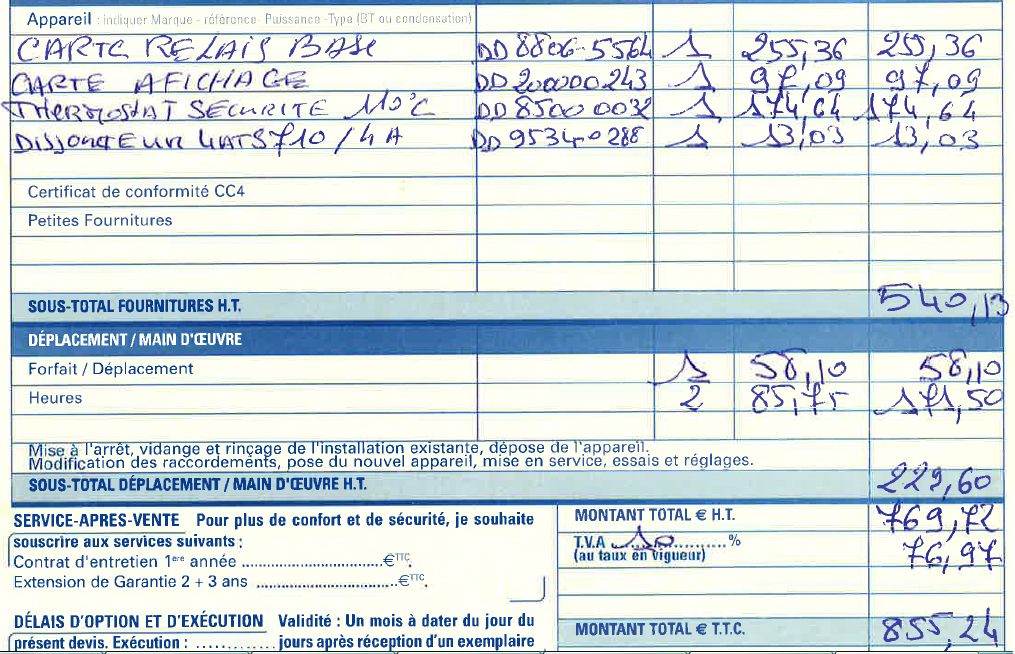 Appareil : indiquer Marque - référence- Puissance -Type (BT ou condensation)
CARTE RELAIS BASE DD 8806-5564 1 255,36 255,36
CARTE AFICHAGE DD 200000243 1 97,09 97,09
THERMOSTAT SECURITE 110°C DD 85000032 1 174,64 174,64
DISJONCTEUR 4ATS710/4A DD 9534-0288 1 13,03 13,03
Certificat de conformité CC4
Petites Fournitures
SOUS-TOTAL FOURNITURES H.T. 540,13
DÉPLACEMENT / MAIN D'ŒUVRE
Forfait / Déplacement 1 58,10 58,10
Heures 2 85,75 171,50
Mise à l'arrêt, vidange et rinçage de l'installation existante, dépose de l'appareil.
Modification des raccordements, pose du nouvel appareil, mise en service, essais et réglages.
SOUS-TOTAL DÉPLACEMENT / MAIN D'ŒUVRE H.T. 229,60
SERVICE-APRES-VENTE Pour plus de confort et de sécurité, je souhaite
souscrire aux services suivants :
Contrat d'entretien 1ère année ..................................€TTC.
Extension de Garantie 2 + 3 ans ..................................€TTC.
DÉLAIS D'OPTION ET D'EXÉCUTION Validité : Un mois à dater du jour du
présent devis. Exécution : ............. jours après réception d'un exemplaire
MONTANT TOTAL € H.T. 769,72
T.V.A ...10...........% 76,97
(au taux en vigueur)
MONTANT TOTAL € T.T.C. 855,24